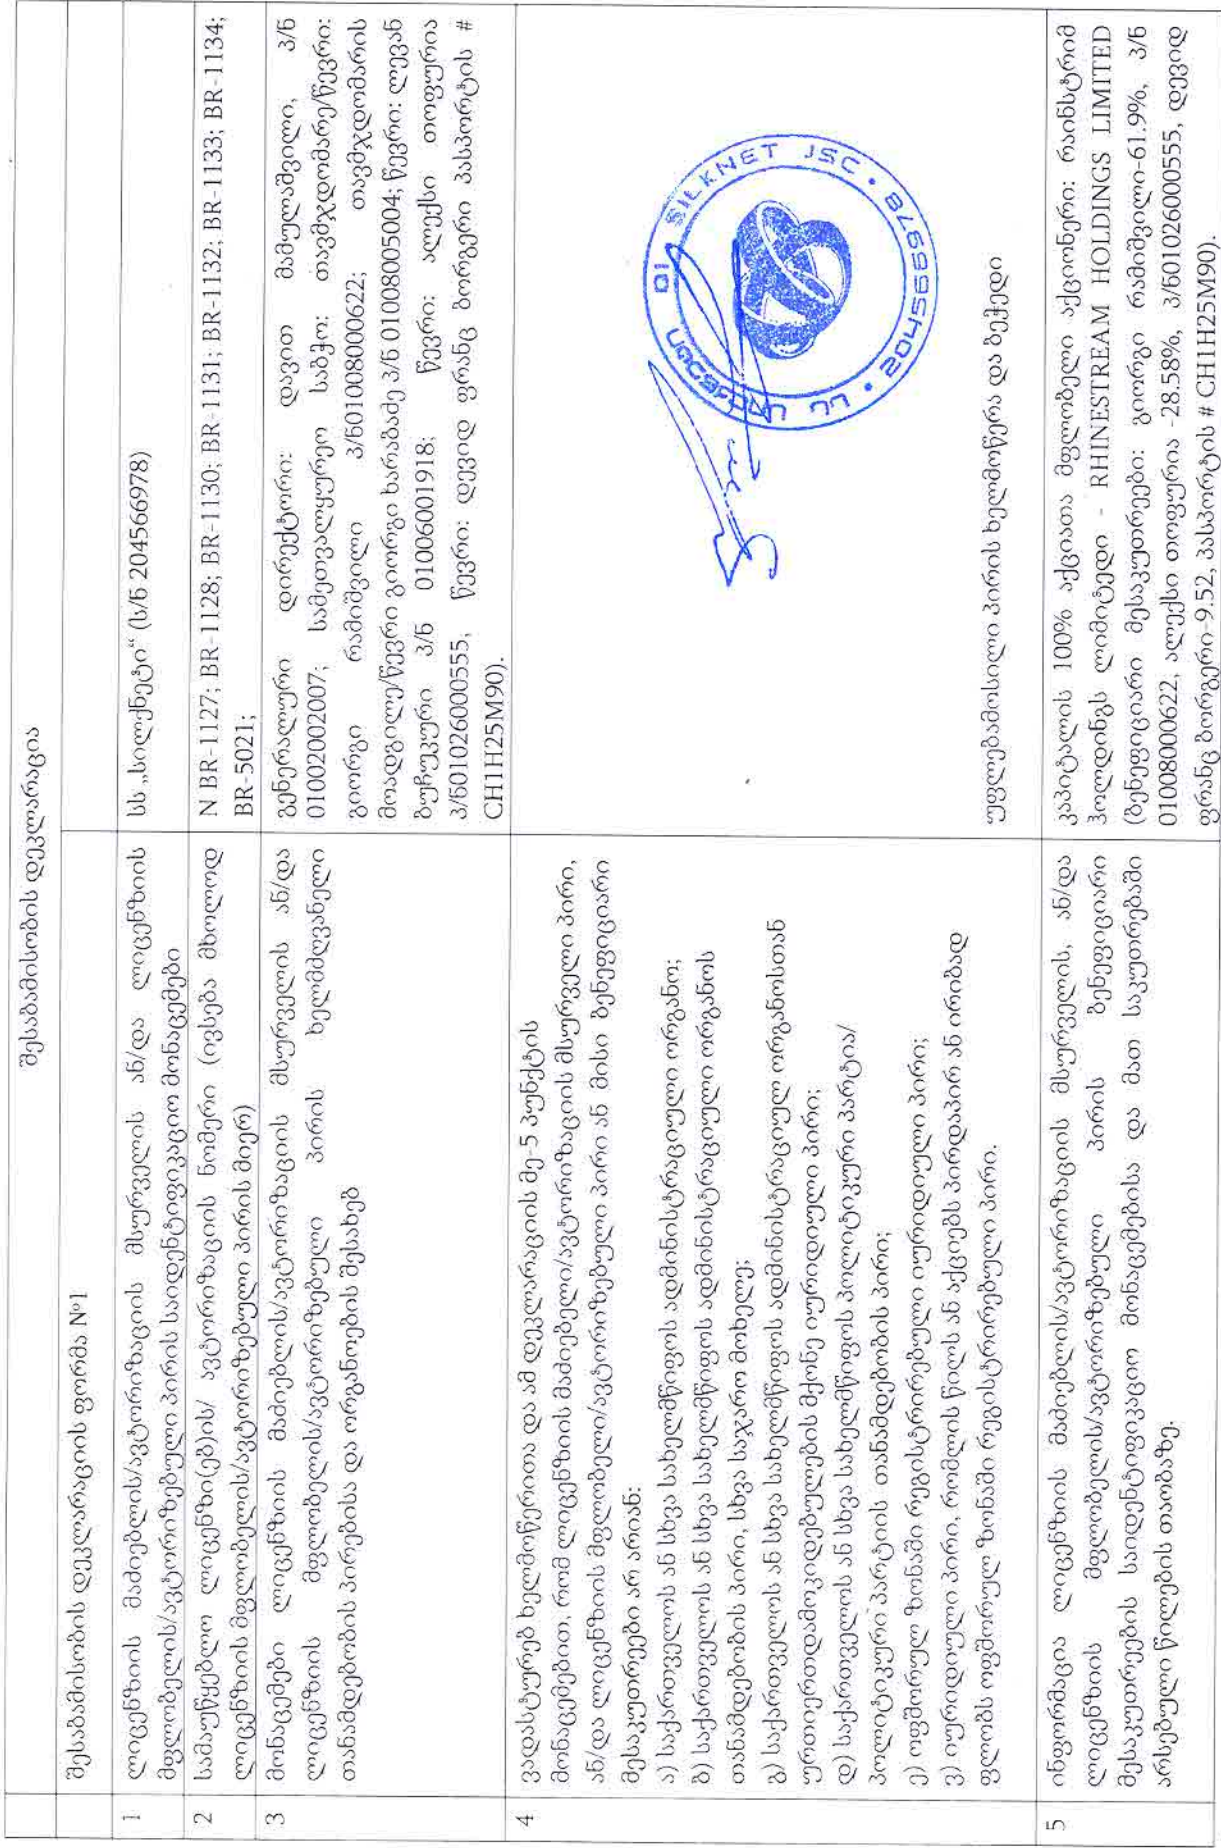 შესაბამისობის დეკლარაცია
შესაბამისობის დეკლარაციის ფორმა №1
1
ლიცენზიის მაძიებლის/ავტორიზაციის მსურველის ან/და ლიცენზიის
მფლობელის/ავტორიზებული პირის საიდენტიფიკაციო მონაცემები
სს „სილქნეტი“ (ს/ნ 204566978)
2
სამაუწყებლო ლიცენზი(ებ)ის/ ავტორიზაციის ნომერი (ივსება მხოლოდ
ლიცენზიის მფლობელის/ავტორიზებული პირის მიერ)
N BR-1127; BR-1128; BR-1130; BR-1131; BR-1132; BR-1133; BR-1134;
BR-5021;
3
მონაცემები ლიცენზიის მაძიებლის/ავტორიზაციის მსურველის ან/და
ლიცენზიის მფლობელის/ავტორიზებული პირის ხელმძღვანელი
თანამდებობის პირებისა და ორგანოების შესახებ
გენერალური დირექტორი: დავით მამულაშვილი, პ/ნ
01002002007; სამეთვალყურეო საბჭო: თავმჯდომარე/წევრი:
გიორგი რამიშვილი პ/ნ01008000622; თავმჯდომარის
მოადგილე/წევრი გიორგი ხარაბაძე პ/ნ 01008005004; წევრი: ლევან
ბუჩუკური პ/ნ 01006001918; წევრი: ალექსი თოფურია
პ/ნ01026000555, წევრი: დევიდ ფრანც ბორგერი პასპორტის #
CH1H25M90).
4
ვადასტურებ ხელმოწერითა და ამ დეკლარაციის მე-5 პუნქტის
მონაცემებით, რომ ლიცენზიის მაძიებელი/ავტორიზაციის მსურველი პირი,
ან/და ლიცენზიის მფლობელი/ავტორიზებული პირი ან მისი ბენეფიციარი
მესაკუთრეები არ არიან:
ა) საქართველოს ან სხვა სახელმწიფოს ადმინისტრაციული ორგანო;
ბ) საქართველოს ან სხვა სახელმწიფოს ადმინისტრაციული ორგანოს
თანამდებობის პირი, სხვა საჯარო მოხელე;
გ) საქართველოს ან სხვა სახელმწიფოს ადმინისტრაციულ ორგანოსთან
ურთიერთდამოკიდებულების მქონე იურიდიული პირი;
დ) საქართველოს ან სხვა სახელმწიფოს პოლიტიკური პარტია/
პოლიტიკური პარტიის თანამდებობის პირი;
ე) ოფშორულ ზონაში რეგისტრირებული იურიდიული პირი;
ვ) იურიდიული პირი, რომლის წილს ან აქციებს პირდაპირ ან ირიბად
ფლობს ოფშორულ ზონაში რეგისტრირებული პირი.
სს სილქნეტი • ID SILKNET JSC • 204566978
უფლებამოსილი პირის ხელმოწერა და ბეჭედი
5
ინფორმაცია ლიცენზიის მაძიებლის/ავტორიზაციის მსურველის, ან/და
ლიცენზიის მფლობელის/ავტორიზებული პირის ბენეფიციარი
მესაკუთრეების საიდენტიფიკაციო მონაცემებისა და მათ საკუთრებაში
არსებული წილების თაობაზე.
კაპიტალის 100% აქციათა მფლობელი აქციონერი: რაინსტრიმ
ჰოლდინგს ლიმიტედი - RHINESTREAM HOLDINGS LIMITED
(ბენეფიციარი მესაკუთრეები: გიორგი რამიშვილი-61.9%, პ/ნ
01008000622, ალექსი თოფურია -28.58%, პ/ნ01026000555, დევიდ
ფრანც ბორგერი-9.52, პასპორტის # CH1H25M90).